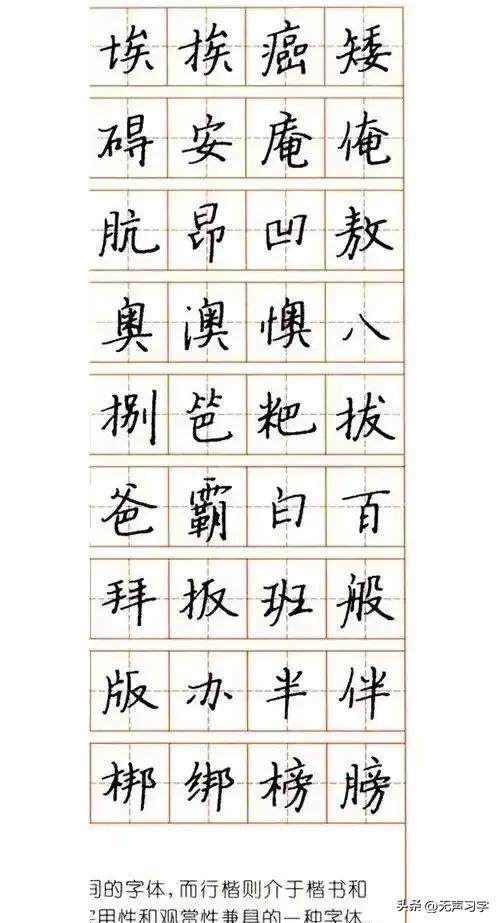 埃挨癌矮
碍安庵俺
肮昂凹敖
奥澳懊八
捌笆粑拔
爸霸白百
拜扳班般
版办半伴
梆绑榜膀
间的字体，而行楷则介于楷书和
实用性和观赏性兼具的一种字体
头条 @无声习字